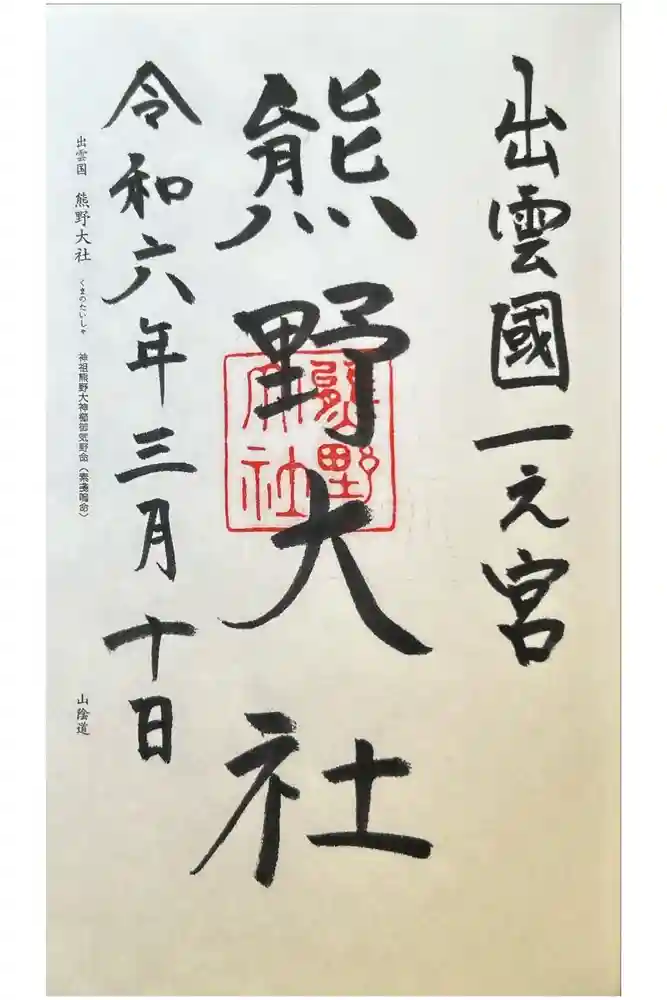 出雲國一之宮
熊野大社
熊野大社
令和六年三月十日
出雲国 熊野大社 くまのたいしゃ 神祖熊野大神櫛御気野命（素戔嗚命） 山陰道